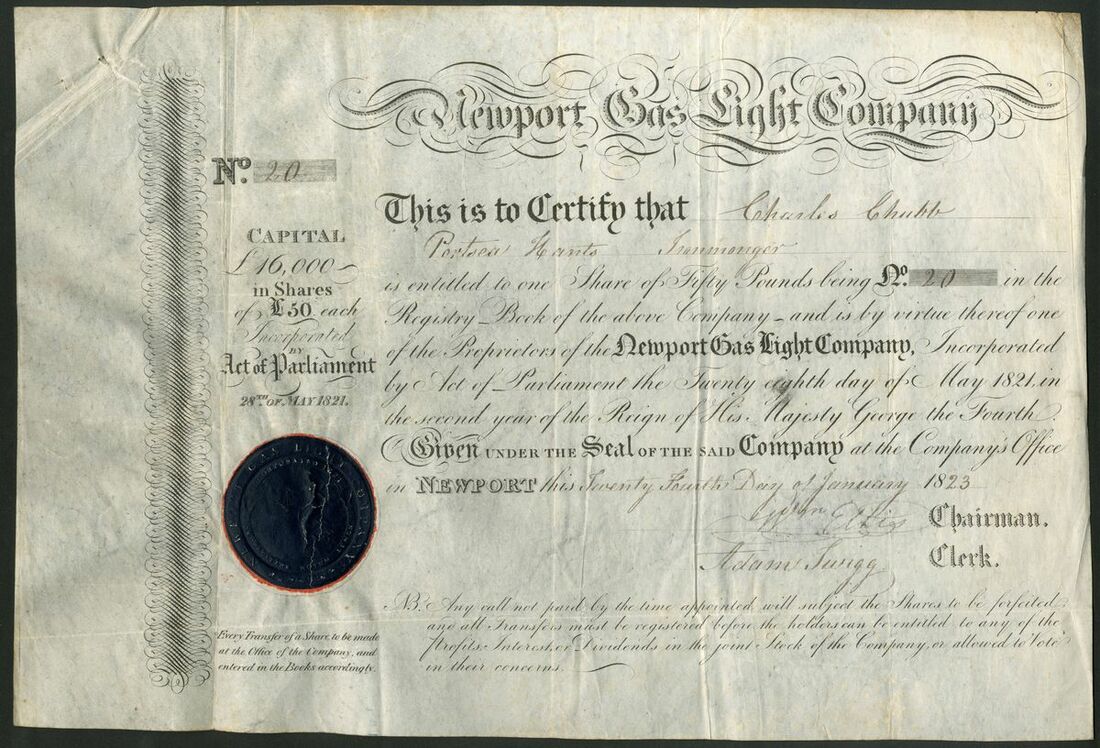 Newport Gas Light Company
No. 20
CAPITAL
£16,000
in Shares
of £50 each
Incorporated
BY
Act of Parliament
28TH OF MAY 1821.
This is to Certify that Charles Chubb
Portsea Hants Ironmonger
is entitled to one Share of Fifty Pounds being No. 20 in the
Registry Book of the above Company and is by virtue thereof one
of the Proprietors of the Newport Gas Light Company, Incorporated
by Act of Parliament the Twenty eighth day of May 1821, in
the second year of the Reign of His Majesty George the Fourth
Given UNDER THE Seal OF THE SAID Company at the Company's Office
in NEWPORT this Twenty Fourth Day of January 1823
Chairman.
Adam Twigg Clerk.
NB. Any call not paid by the time appointed will subject the Shares to be forfeited;
and all Transfers must be registered before the holders can be entitled to any of the
Profits Interest or Dividends in the joint Stock of the Company, or allowed to Vote
in their concerns.
Every Transfer of a Share, to be made
at the Office of the Company, and
entered in the Books accordingly.